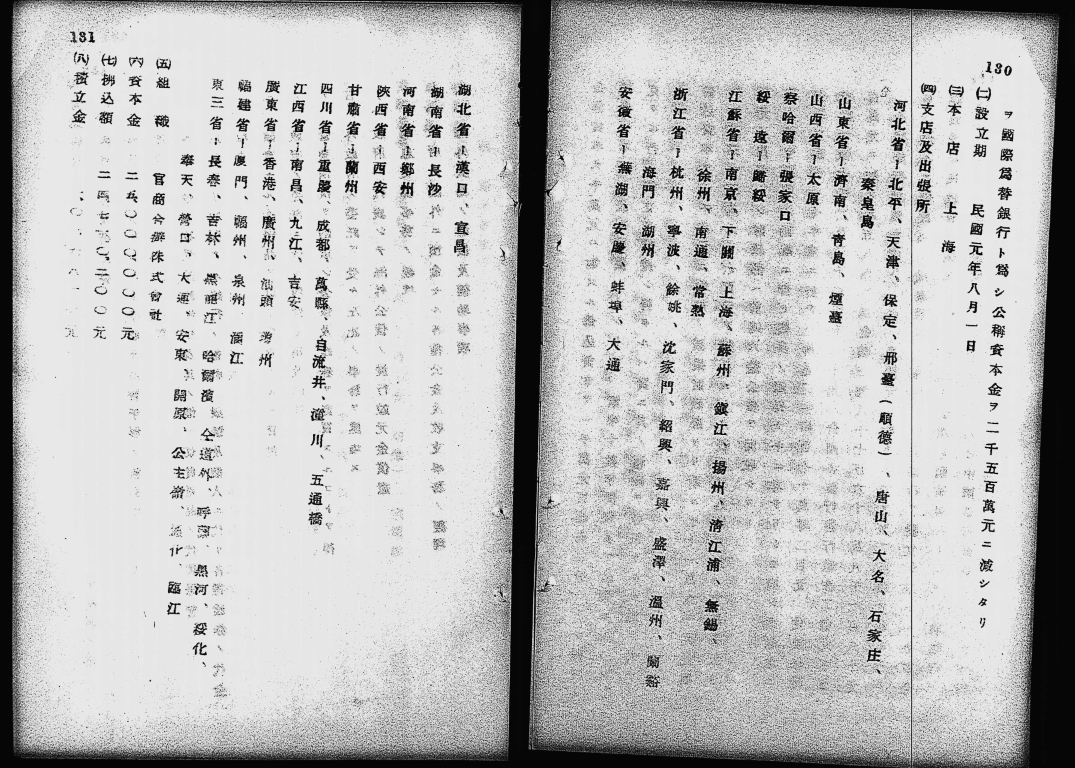 130
ヲ國際爲替銀行ト爲シ公稱資本金ヲ二千五百萬元ニ減シタリ
㈡設立期 民國元年八月一日
㈢本店 上海
㈣支店及出張所
河北省ー北平、天津、保定、邢臺(順德)、唐山、大名、石家庄、
秦皇島
山東省ー濟南、靑島、煙臺
山西省ー太原
察哈爾ー張家口
綏遠ー歸綏
江蘇省ー南京、下關、上海、蘇州、鎭江、揚州、淸江浦、無錫、
徐州、南通、常熟
浙江省ー杭州、寧波、餘姚、沈家門、紹興、嘉興、盛澤、溫州、蘭谿
海門、湖州
安徽省ー蕪湖、安慶、蚌埠、大通
131
湖北省ー漢口、宜昌
湖南省ー長沙
河南省ー鄭州
陝西省ー西安
甘肅省ー蘭州
四川省ー重慶、成都、萬縣、自流井、潼川、五通橋
江西省ー南昌、九江、吉安
廣東省ー香港、廣州、汕頭
福建省ー厦門、福州、泉州、涵江
東三省ー長春、吉林、黑龍江、哈爾濱、仝道外、呼蘭、黑河、綏化、
奉天、營口、大連、安東、開原、公主嶺、通化、臨江
㈤組織 官商合辦株式會社
㈥資本金 二五、〇〇〇、〇〇〇元
㈦拂込額
㈧積立金